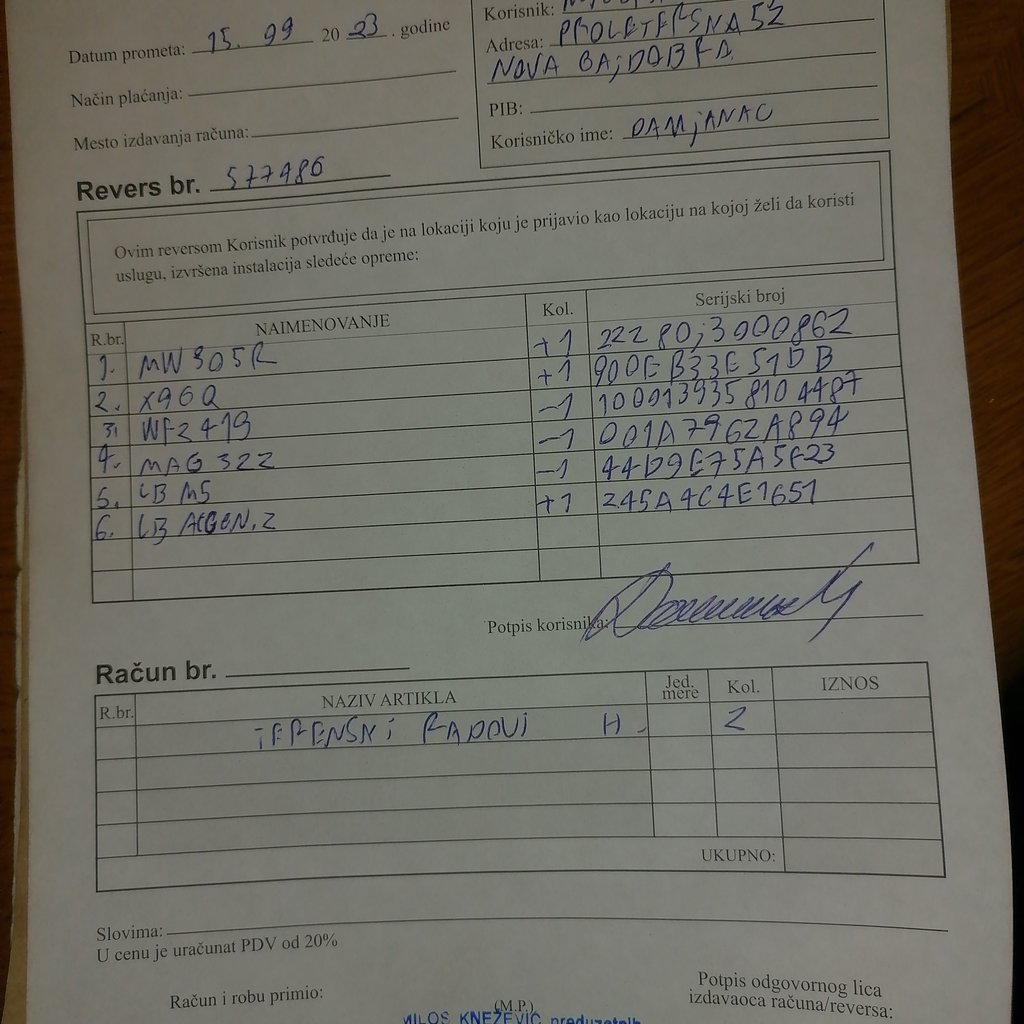 Korisnik:
Datum prometa: 15. 09 20 23. godine
Adresa: PROLETERSKA 52
NOVA GAJDOBRA
Način plaćanja:
PIB:
Mesto izdavanja računa:
Korisničko ime: DAMjANAC
Revers br. 577486
Ovim reversom Korisnik potvrđuje da je na lokaciji koju je prijavio kao lokaciju na kojoj želi da koristi
uslugu, izvršena instalacija sledeće opreme:
R.br. NAIMENOVANJE Kol. Serijski broj
1. MW305R +1 22280j3000862
2. X96Q +1 900EB33E51DB
3. WF2419 -1
4. MAG 322 -1 001A7962A894
5. LB M5 -1 44D9E75A5F23
6. LB ACGEN.2 +1 245A4C4E1651
Potpis korisnika:
Račun br.
R.br. NAZIV ARTIKLA Jed. mere Kol. IZNOS
TERENSKi RADOVi H. 2
UKUPNO:
Slovima:
U cenu je uračunat PDV od 20%
Račun i robu primio:
(M.P.)
Potpis odgovornog lica
izdavaoca računa/reversa:
MILOŠ KNEŽEVIĆ preduzetnik